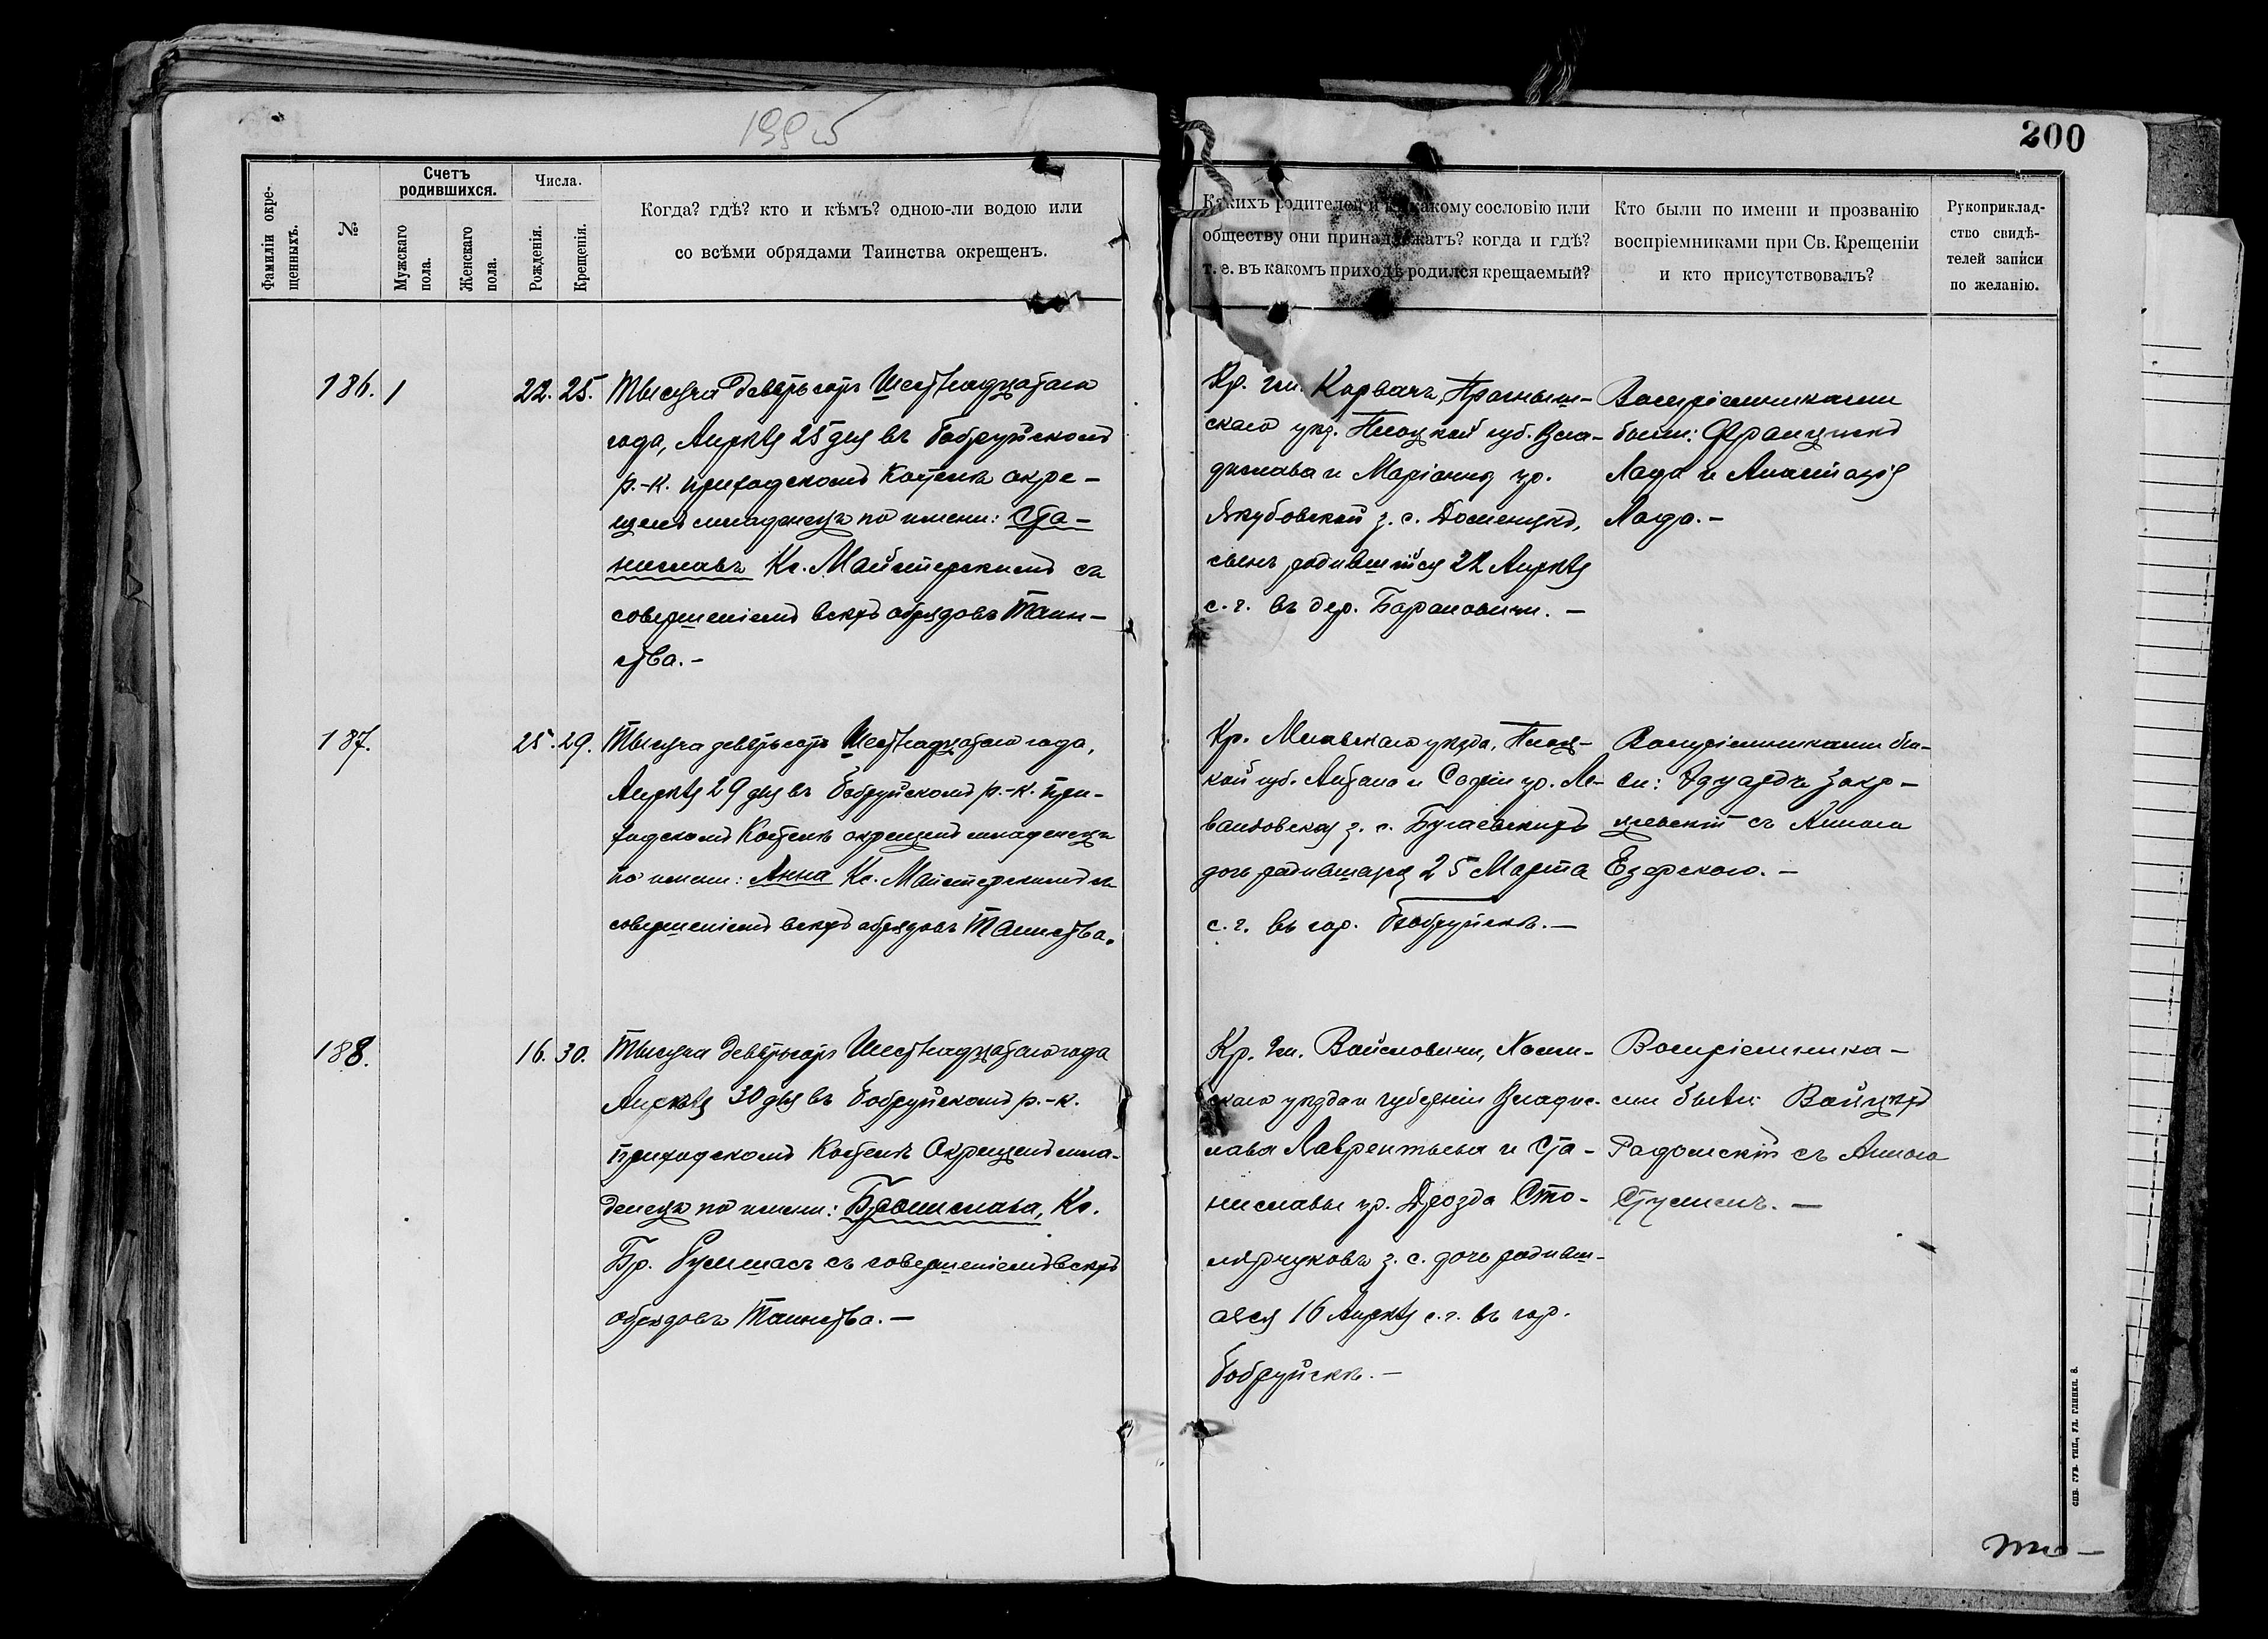 200
Фамиліи окре-
щенныхъ.
№
Счетъ
родившихся.
Мужскаго
пола.
Женскаго
пола.
Числа.
Рожденія.
Крещенія.
Когда? гдѣ? кто и кѣмъ? одною-ли водою или
со всѣми обрядами Таинства окрещенъ.
Какихъ родителей и къ какому сословію или
обществу они принадлежатъ? когда и гдѣ?
т. е. въ какомъ приходѣ родился крещаемый?
Кто были по имени и прозванію
воспріемниками при Св. Крещеніи
и кто присутствовалъ?
Рукоприклад-
ство свидѣ-
телей записи
по желанію.
186. 1 22. 25.
Тысяча девятьсотъ Шестнадцатаго
года, Апрѣля 25 дня въ Бобруйскомъ
р.-к. приходскомъ Костелѣ окре-
щенъ младенецъ по имени: Ста-
ниславъ Кс. Майстерскимъ съ
совершеніемъ всѣхъ обрядовъ Таин-
ства.-
Кр. гм. Прасныш-
скаго уѣз. Плоцкой губ. Вла-
дислава и Маріанны ур.
Якубовской з. с.
сынъ родившійся 22 Апрѣля
с. г. въ дер. Барановичи. -
Воспріемниками
были: Францискъ
Лада и Анастазія
Лада. -
187. 25. 29.
Тысяча девятьсотъ Шестнадцатаго года,
Апрѣля 29 дня въ Бобруйскомъ р.-к. при-
ходскомъ Костелѣ окрещенъ младенецъ
по имени: Анна Кс. Майстерскимъ съ
совершеніемъ всѣхъ обрядовъ Таинства.
Кр. Млавскаго уѣзда, Плоц-
кой губ. Антона и Софіи ур. Ле-
вандовской з. с.
дочь родившаяся 25 Марта
с. г. въ гор. Бобруйскѣ. -
Воспріемниками бы-
ли: Эдуардъ Закр-
жевскій съ Анною
Езерскою. -
188. 16. 30.
Тысяча девятьсотъ Шестнадцатаго года
Апрѣля 30 дня въ Бобруйскомъ р.-к.
приходскомъ Костелѣ Окрещенъ мла-
денецъ по имени: Брониславa, Кс.
Бр. съ совершеніемъ всѣхъ
обрядовъ Таинства. -
Кр. гм. Войсловичи, Холм-
скаго уѣзда и губерніи Владис-
лава Лаврентьева и Ста-
ниславы ур. Дрозда Сто-
лярчуковъ з. с. дочь родивш-
аяся 16 Апрѣля с. г. въ гор.
Бобруйскѣ. -
Воспріемника-
ми были: Войцѣхъ
Радомскій съ Анною
СПБ. ГУБ. ТИП., УЛ. ГЛИНКИ, 8.